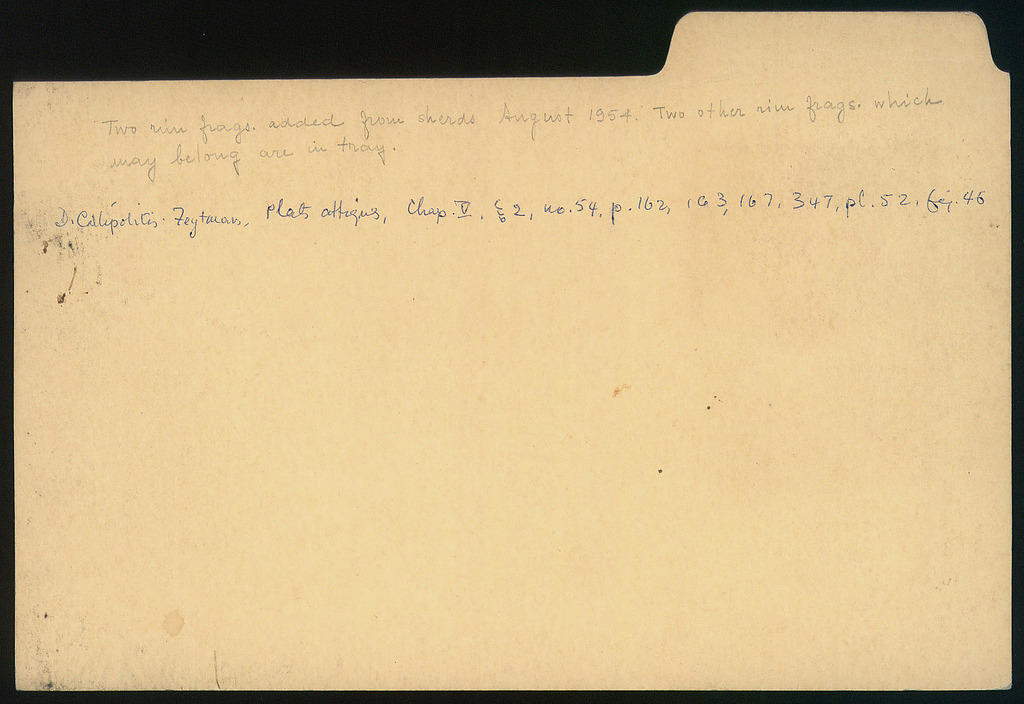 Two rim frags. added from sherds August 1954. Two other rim frags. which
may belong are in tray.
D. Callipolitis-Feytmans, Plats attiques, Chap. V, § 2, no. 54, p. 162, 163, 167, 347, pl. 52, fig. 46